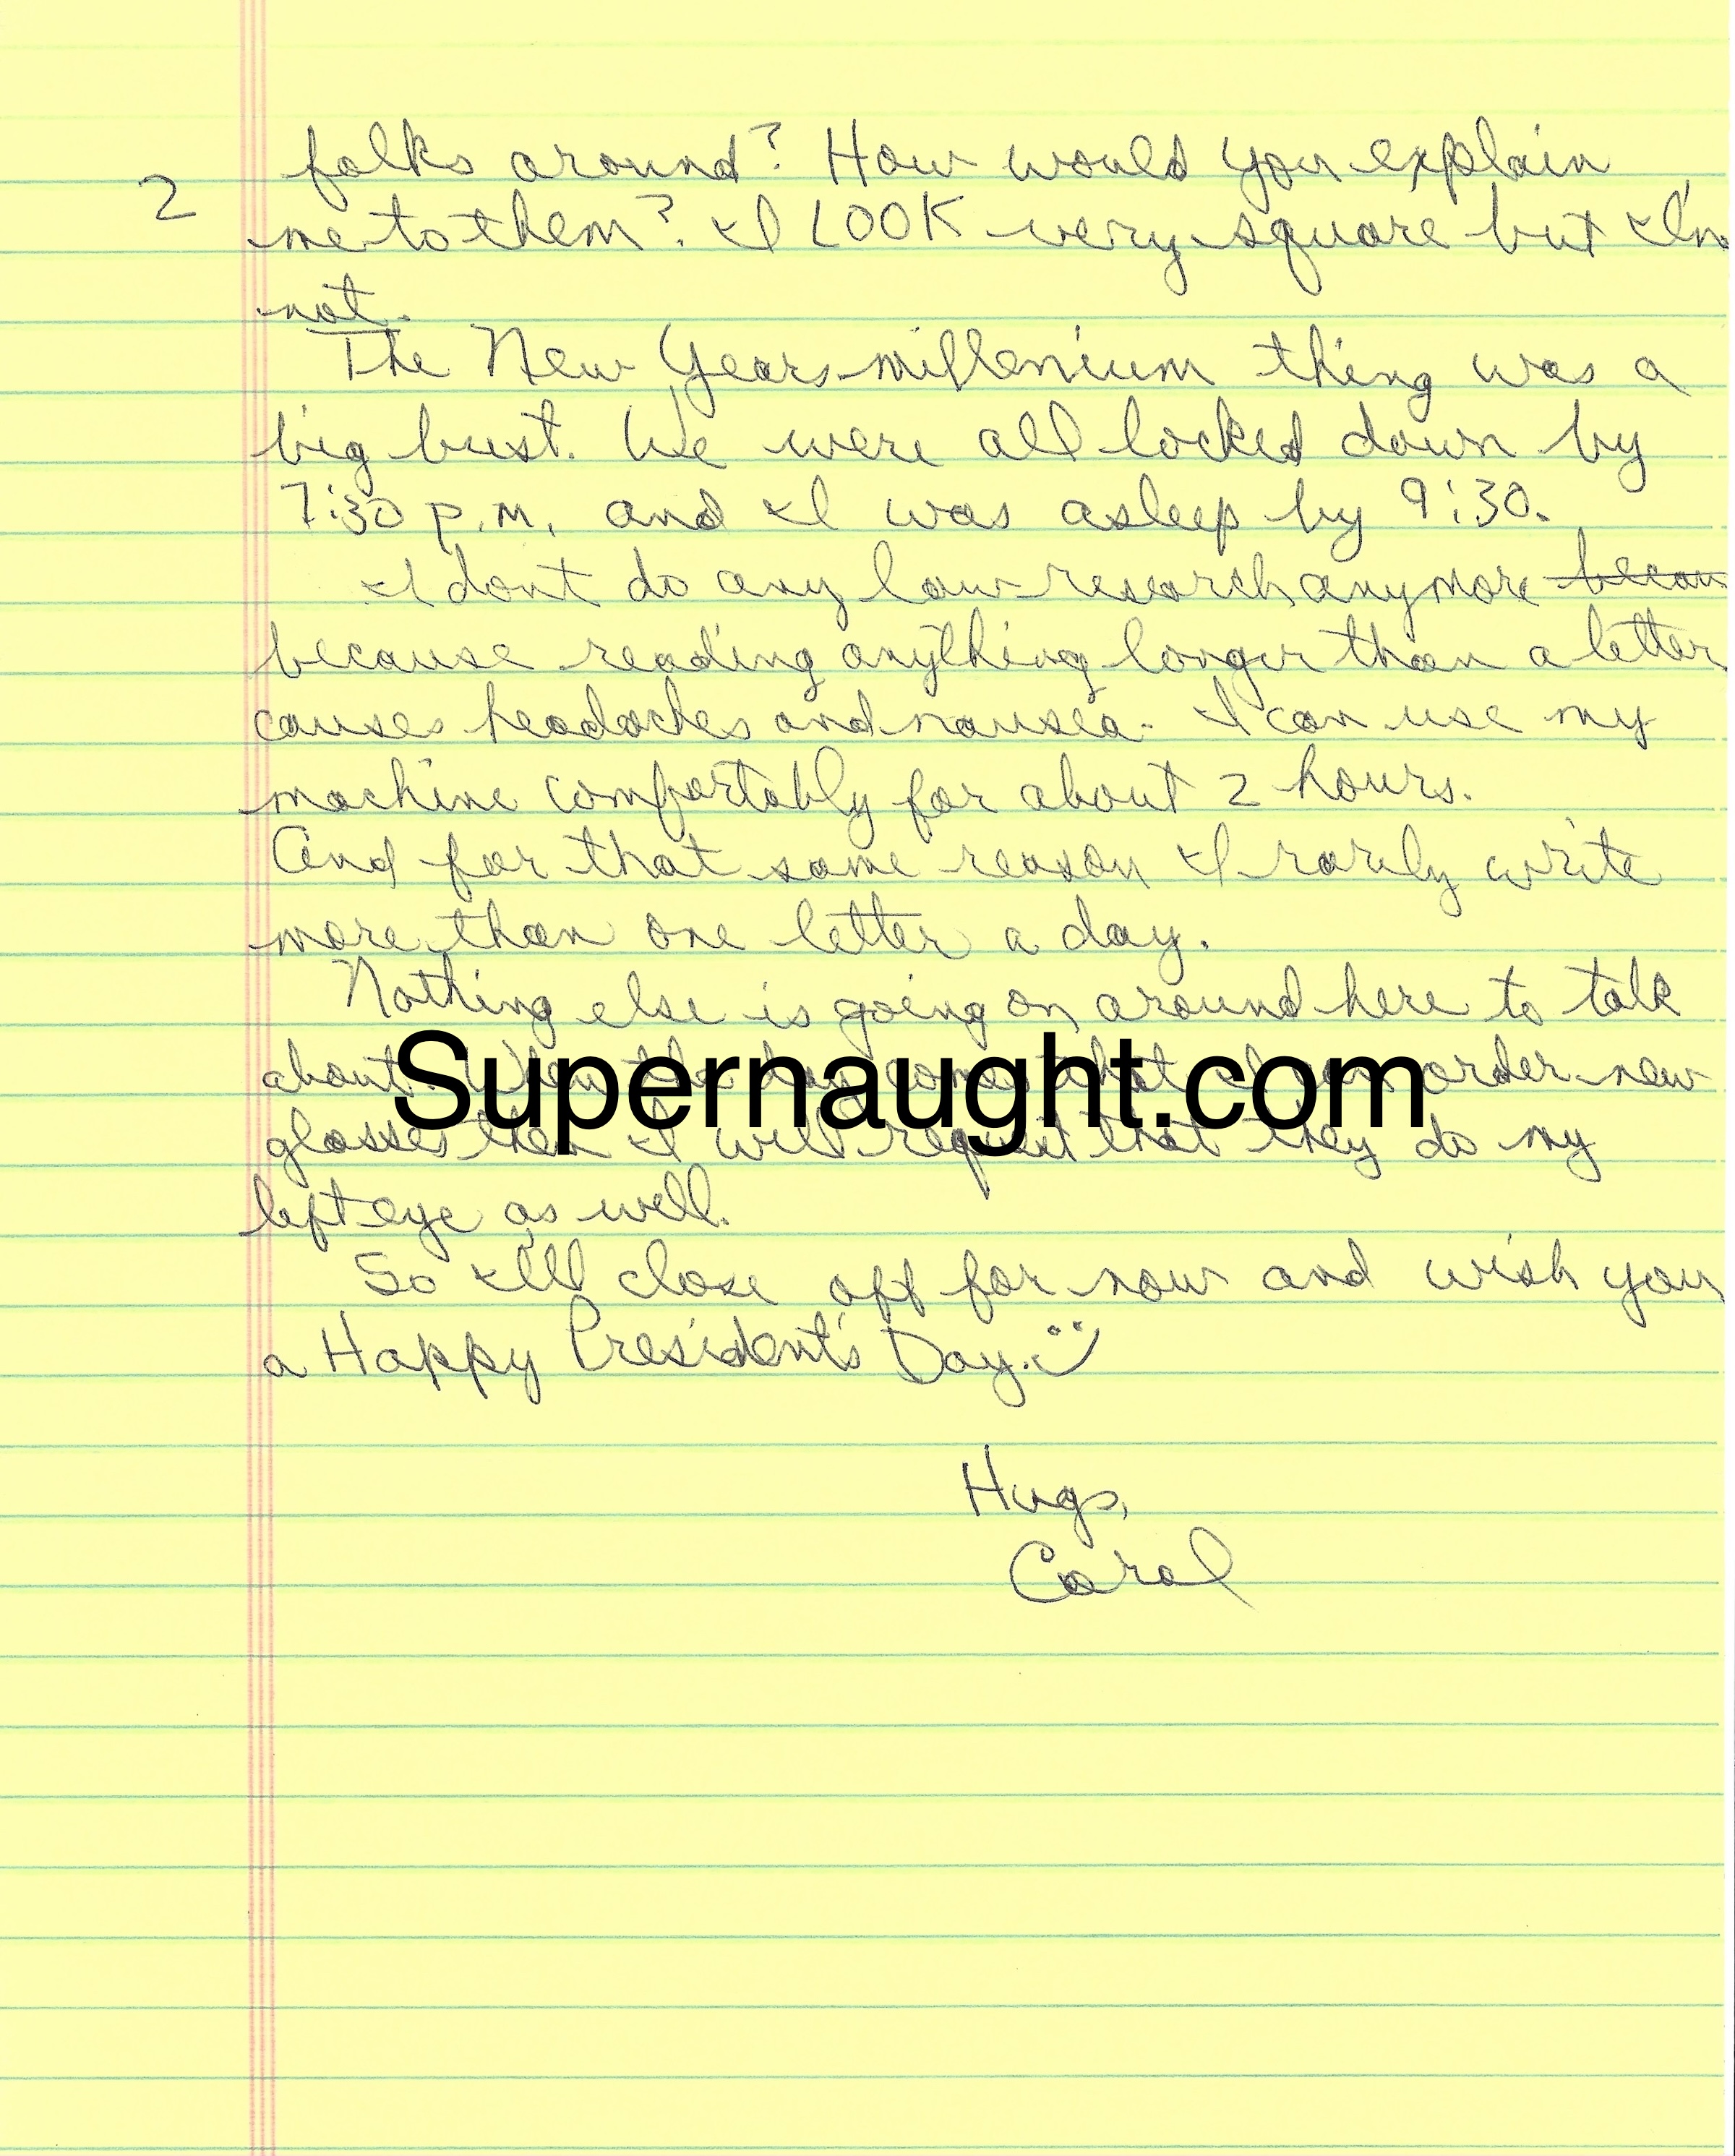 2
folks around? How would you explain
me to them? I LOOK very square but I'm
not.
The New Years millenium thing was a
big bust. We were all locked down by
7:30 p.m. and I was asleep by 9:30.
I dont do any law research anymore becau
because reading anything longer than a letter
causes headaches and nausea. I can use my
machine comfortably for about 2 hours.
And for that same reason I rarely write
more than one letter a day.
Nothing else is going on around here to talk
about. When the day comes that I can order new
Supernaught.com
glasses then I will request that they do my
left eye as well.
So I'll close off for now and wish you
a Happy President's Day.
Hugs,
Carol